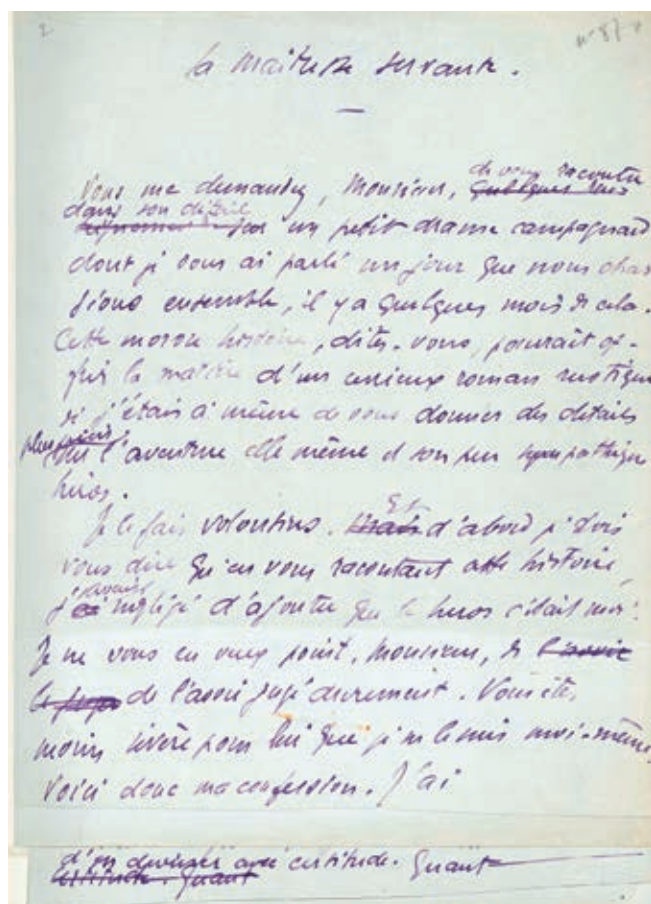 2
n° 87
La maîtresse servante.
de vous raconter
Vous me demandez, Monsieur, quelques
dans son détail
sur un petit drame campagnard
dont je vous ai parlé un jour que nous chas
sions ensemble, il y a quelques mois de cela.
Cette morose histoire, dites-vous, pourrait of-
frir la matière d'un curieux roman rustique
si j'étais à même de vous donner des détails
plus précis
sur l'aventure elle même et son peu sympathique
héros.
Et
Je le fais volontiers. Mais d'abord je dois
vous dire qu'en vous racontant cette histoire,
avais
j'ai négligé d'ajouter que le héros c'était moi.
Je ne vous en veux point, Monsieur, de l'avoir
le juger de l'avoir jugé durement. Vous êtes
moins sévère pour lui que je ne le suis moi-même,
Voici donc ma confession. J'ai
d'en deviner avec certitude. Quant
certitude. Quant